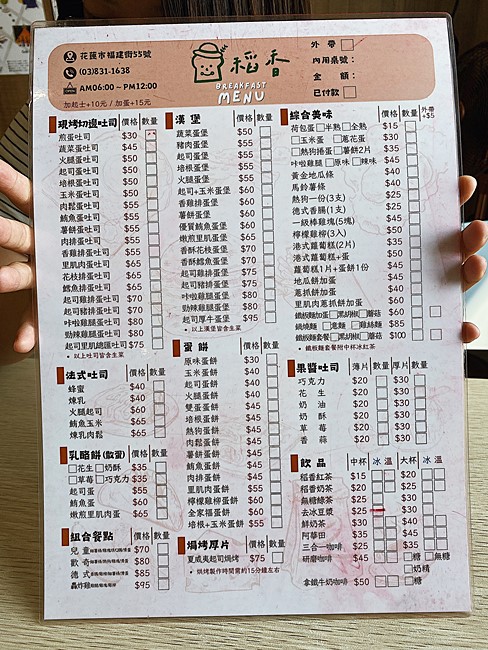 花蓮市福建街55號
(03)831-1638
AM06:00~PM12:00
加起士+10元 / 加蛋+15元
稻香
BREAKFAST
MENU
外帶
內用桌號:
金額:
已付款
現烤切邊吐司 價格 數量
煎蛋吐司 $30
蔬菜蛋吐司 $45
火腿蛋吐司 $50
起司蛋吐司 $50
培根蛋吐司 $50
玉米蛋吐司 $50
肉鬆蛋吐司 $55
鮪魚蛋吐司 $55
薯餅蛋吐司 $55
肉排蛋吐司 $55
香雞蛋吐司 $65
里肌肉蛋吐司 $65
花枝排蛋吐司 $65
鱈魚排蛋吐司 $65
起司雞排蛋吐司 $70
起司豬排蛋吐司 $70
咔啦雞腿蛋吐司 $80
勁辣雞腿蛋吐司 $80
起司里肌總匯吐司 $75
*以上吐司皆含生菜
法式吐司 價格 數量
蜂蜜 $40
煉乳 $40
火腿起司 $60
鮪魚玉米 $65
煉乳肉鬆 $65
乳酪餅(軟蛋) 價格 數量
花生 奶酥 $35
草莓 巧克力 $35
起司蛋 $55
鮪魚蛋 $60
嫩煎里肌肉蛋 $65
組合餐點 價格 數量
兒童 $70
歡奇 $80
德式 $85
轟炸雞 $95
漢堡 價格 數量
蔬菜蛋堡 $50
豬肉蛋堡 $55
起司蛋堡 $55
培根蛋堡 $55
火腿蛋堡 $55
起司+玉米蛋堡 $60
香雞排蛋堡 $60
薯餅蛋堡 $60
優質鮪魚蛋堡 $60
嫩煎里肌蛋堡 $65
香酥花枝蛋堡 $70
香酥鱈魚蛋堡 $70
起司雞排蛋堡 $75
起司豬排蛋堡 $75
咔啦雞腿蛋堡 $80
勁辣雞腿蛋堡 $80
起司厚牛蛋堡 $95
*以上漢堡皆含生菜
蛋餅 價格 數量
原味蛋餅 $30
玉米蛋餅 $40
起司蛋餅 $40
火腿蛋餅 $40
雙蛋蛋餅 $45
培根蛋餅 $45
熱狗蛋餅 $45
肉鬆蛋餅 $45
薯餅蛋餅 $45
鮪魚蛋餅 $45
肉排蛋餅 $45
里肌肉蛋餅 $55
檸檬雞柳蛋餅 $60
全家福蛋餅 $60
培根+玉米蛋餅 $55
焗烤厚片 價格 數量
夏威夷起司焗烤 $75
*烘烤製作時間需約15分鐘左右
綜合美味 價格 數量 外帶+$5
荷包蛋 半熟 全熟 $15
玉米蛋 蔥花蛋 $30
熱狗捲蛋 薯餅2片 $35
咔啦雞腿 原味 辣味 $45
黃金地瓜條 $40
馬鈴薯條 $40
熱狗一份(3支) $25
德式香腸(1支) $25
一級棒雞塊(5塊) $45
檸檬雞柳(3入) $50
港式蘿蔔糕(2片) $35
港式蘿蔔糕+蛋 $50
蘿蔔糕1片+蛋餅1份 $45
地瓜餅加蛋 $45
蔥抓餅加蛋 $40
里肌肉蔥抓餅加蛋 $60
鐵板麵加蛋 黑胡椒 蘑菇 $60
鍋燒麵 意麵 雞絲麵 $85
鐵板麵套餐 黑胡椒 蘑菇 $100
*鐵板麵套餐附中杯冰紅茶
果醬吐司 薄片 數量 厚片 數量
巧克力 $20 $30
花生 $20 $30
奶油 $20 $30
奶酥 $20 $30
草莓 $20 $30
香蒜 $20 $30
飲品 中杯 冰 溫 大杯 冰 溫
稻香紅茶 $15 $20
稻香奶茶 $20 $25
無糖綠茶 $25 $30
去冰豆漿 $25 $30
鮮奶茶 $30 $40
阿華田 $35 $45
三合一咖啡 $25 $35
研磨咖啡 $45 糖 無糖
奶精
拿鐵牛奶咖啡 $50 糖